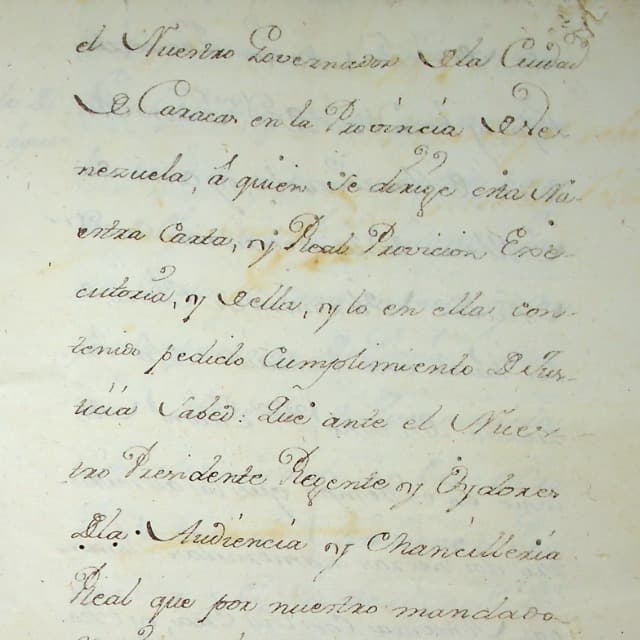 el Nuestro Governador Dela Ciudad
De Caracas en la Província De Ve-
nezuela, á quien se dirige esta Nu-
estra Carta, y Real Provicion Exe-
cutoria, y Della, y lo en ella con-
tenido pedido Cumplimiento De Jus-
ticia Sabed: Que ante el Nues-
tro Presidente Regente y Oydores
Dela Audiéncia y Chancilleria
Real que por nuestro mandado